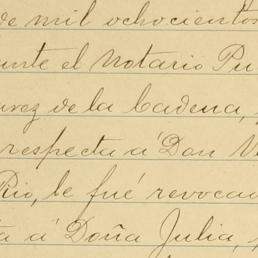 de mil ochocientos
ante el Notario Pu
avez de la Cadena,
respecta á Don
Rio, le fué revoca
a á Doña Julia,